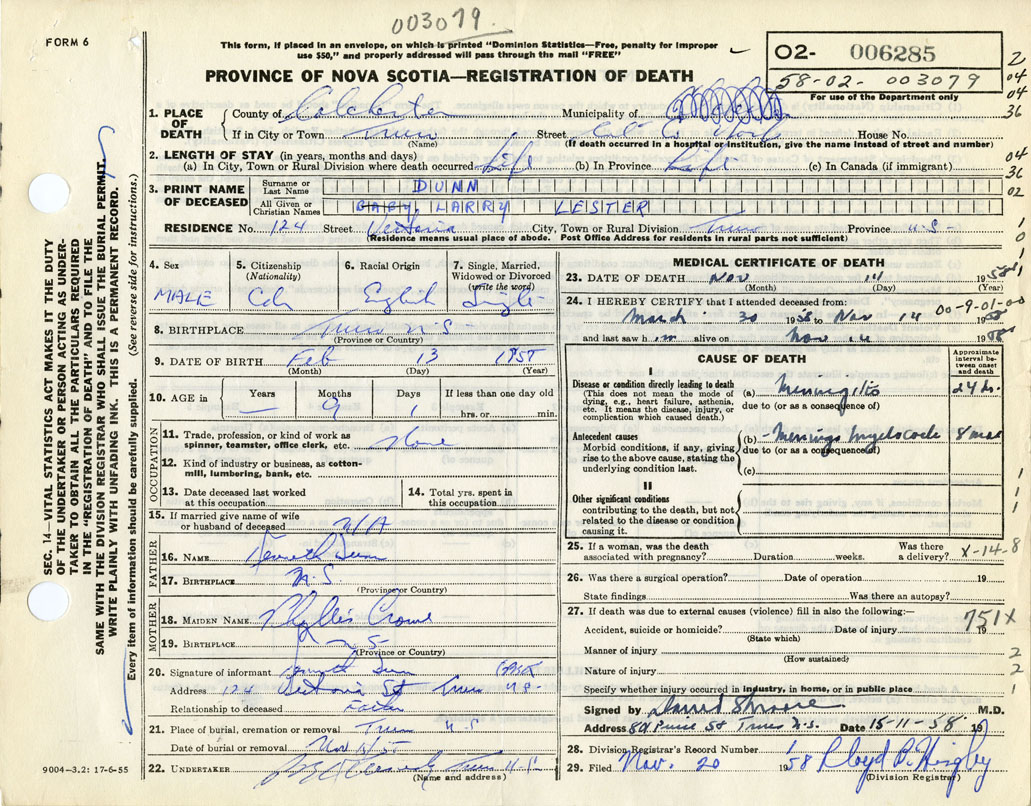 003079.
FORM 6
This form, if placed in an envelope, on which is printed "Dominion Statistics—Free, penalty for improper
use $50," and properly addressed will pass through the mail "FREE"
O2- 006285
58-02-003079
For use of the Department only
PROVINCE OF NOVA SCOTIA—REGISTRATION OF DEATH
1. PLACE OF DEATH
County of Colchester Municipality of
If in City or Town Truro Street House No.
(Name) (If death occurred in a hospital or institution, give the name instead of street and number)
2. LENGTH OF STAY (in years, months and days)
(a) In City, Town or Rural Division where death occurred Life (b) In Province Life (c) In Canada (if immigrant)
3. PRINT NAME OF DECEASED
Surname or Last Name DUNN
All Given or Christian Names BABY, LARRY LESTER
RESIDENCE No. 124 Street Victoria City, Town or Rural Division Truro Province N.S.
(Residence means usual place of abode. Post Office Address for residents in rural parts not sufficient)
4. Sex MALE
5. Citizenship (Nationality) Cdn
6. Racial Origin English
7. Single, Married, Widowed or Divorced (write the word) Single
8. BIRTHPLACE Truro N.S.
(Province or Country)
9. DATE OF BIRTH Feb 13
(Month) (Day) (Year)
10. AGE in Years — Months 9 Days 1 If less than one day
hrs. or min.
OCCUPATION
11. Trade, profession, or kind of work as spinner, teamster, office clerk, etc. None
12. Kind of industry or business, as cotton-mill, lumbering, bank, etc.
13. Date deceased last worked at this occupation
14. Total yrs. spent in this occupation
15. If married give name of wife or husband of deceased N/A
FATHER
16. NAME Kenneth Dunn
17. BIRTHPLACE N.S.
(Province or Country)
MOTHER
18. MAIDEN NAME Phyllis Crowe
19. BIRTHPLACE N.S.
(Province or Country)
20. Signature of informant Kenneth Dunn
Address 124 Victoria St Truro N.S.
Relationship to deceased Father
21. Place of burial, cremation or removal Truro N.S.
Date of burial or removal Nov
22. UNDERTAKER Truro N.S.
(Name and address)
9004—3.2: 17-6-55
MEDICAL CERTIFICATE OF DEATH
23. DATE OF DEATH Nov 14 1958
(Month) (Day) (Year)
24. I HEREBY CERTIFY that I attended deceased from:
00-9-01-00
March 30 1958 to Nov 14 1958
and last saw him alive on Nov 14 1958
CAUSE OF DEATH
Approximate interval between onset and death
I
Disease or condition directly leading to death
(This does not mean the mode of dying, e.g., heart failure, asthenia, etc. It means the disease, injury, or complication which caused death.)
(a) Meningitis 24 hrs.
due to (or as a consequence of)
Antecedent causes
Morbid conditions, if any, giving rise to the above cause, stating the underlying condition last.
(b) Meningo myelocoele 8 mos
due to (or as a consequence of)
(c)
II
Other significant conditions
contributing to the death, but not related to the disease or condition causing it.
25. If a woman, was the death associated with pregnancy? Duration weeks. Was there a delivery?
X-14-8
26. Was there a surgical operation? Date of operation 19
State findings Was there an autopsy?
27. If death was due to external causes (violence) fill in also the following:—
751X
Accident, suicide or homicide? Date of injury 19
(State which)
Manner of injury
(How sustained)
Nature of injury
Specify whether injury occurred in industry, in home, or in public place
Signed by M.D.
Address Truro N.S. Date 15-11-58 19
28. Division Registrar's Record Number
29. Filed Nov. 20 1958 Lloyd
(Division Registrar)
SEC. 14—VITAL STATISTICS ACT MAKES IT THE DUTY
OF THE UNDERTAKER OR PERSON ACTING AS UNDER-
TAKER TO OBTAIN ALL THE PARTICULARS REQUIRED
IN THE "REGISTRATION OF DEATH" AND TO FILE THE
SAME WITH THE DIVISION REGISTRAR WHO SHALL ISSUE THE BURIAL PERMIT.
WRITE PLAINLY WITH UNFADING INK. THIS IS A PERMANENT RECORD.
Every item of information should be carefully supplied. (See reverse side for instructions.)
2
04
04
36
04
36
02
1
0
1
1
1
1
1
2
2
1